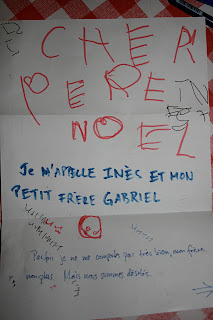 CHER
PERE
NOEL
JE M'APPELLE INÈS ET MON
PETIT FRÈRE GABRIEL
Parfois je ne me comporte pas très bien, mon frère
non plus. Mais nous sommes désolés.